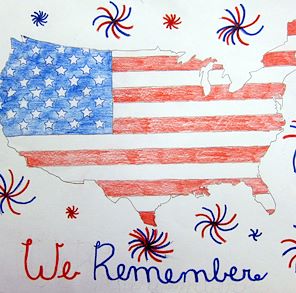 We Remember